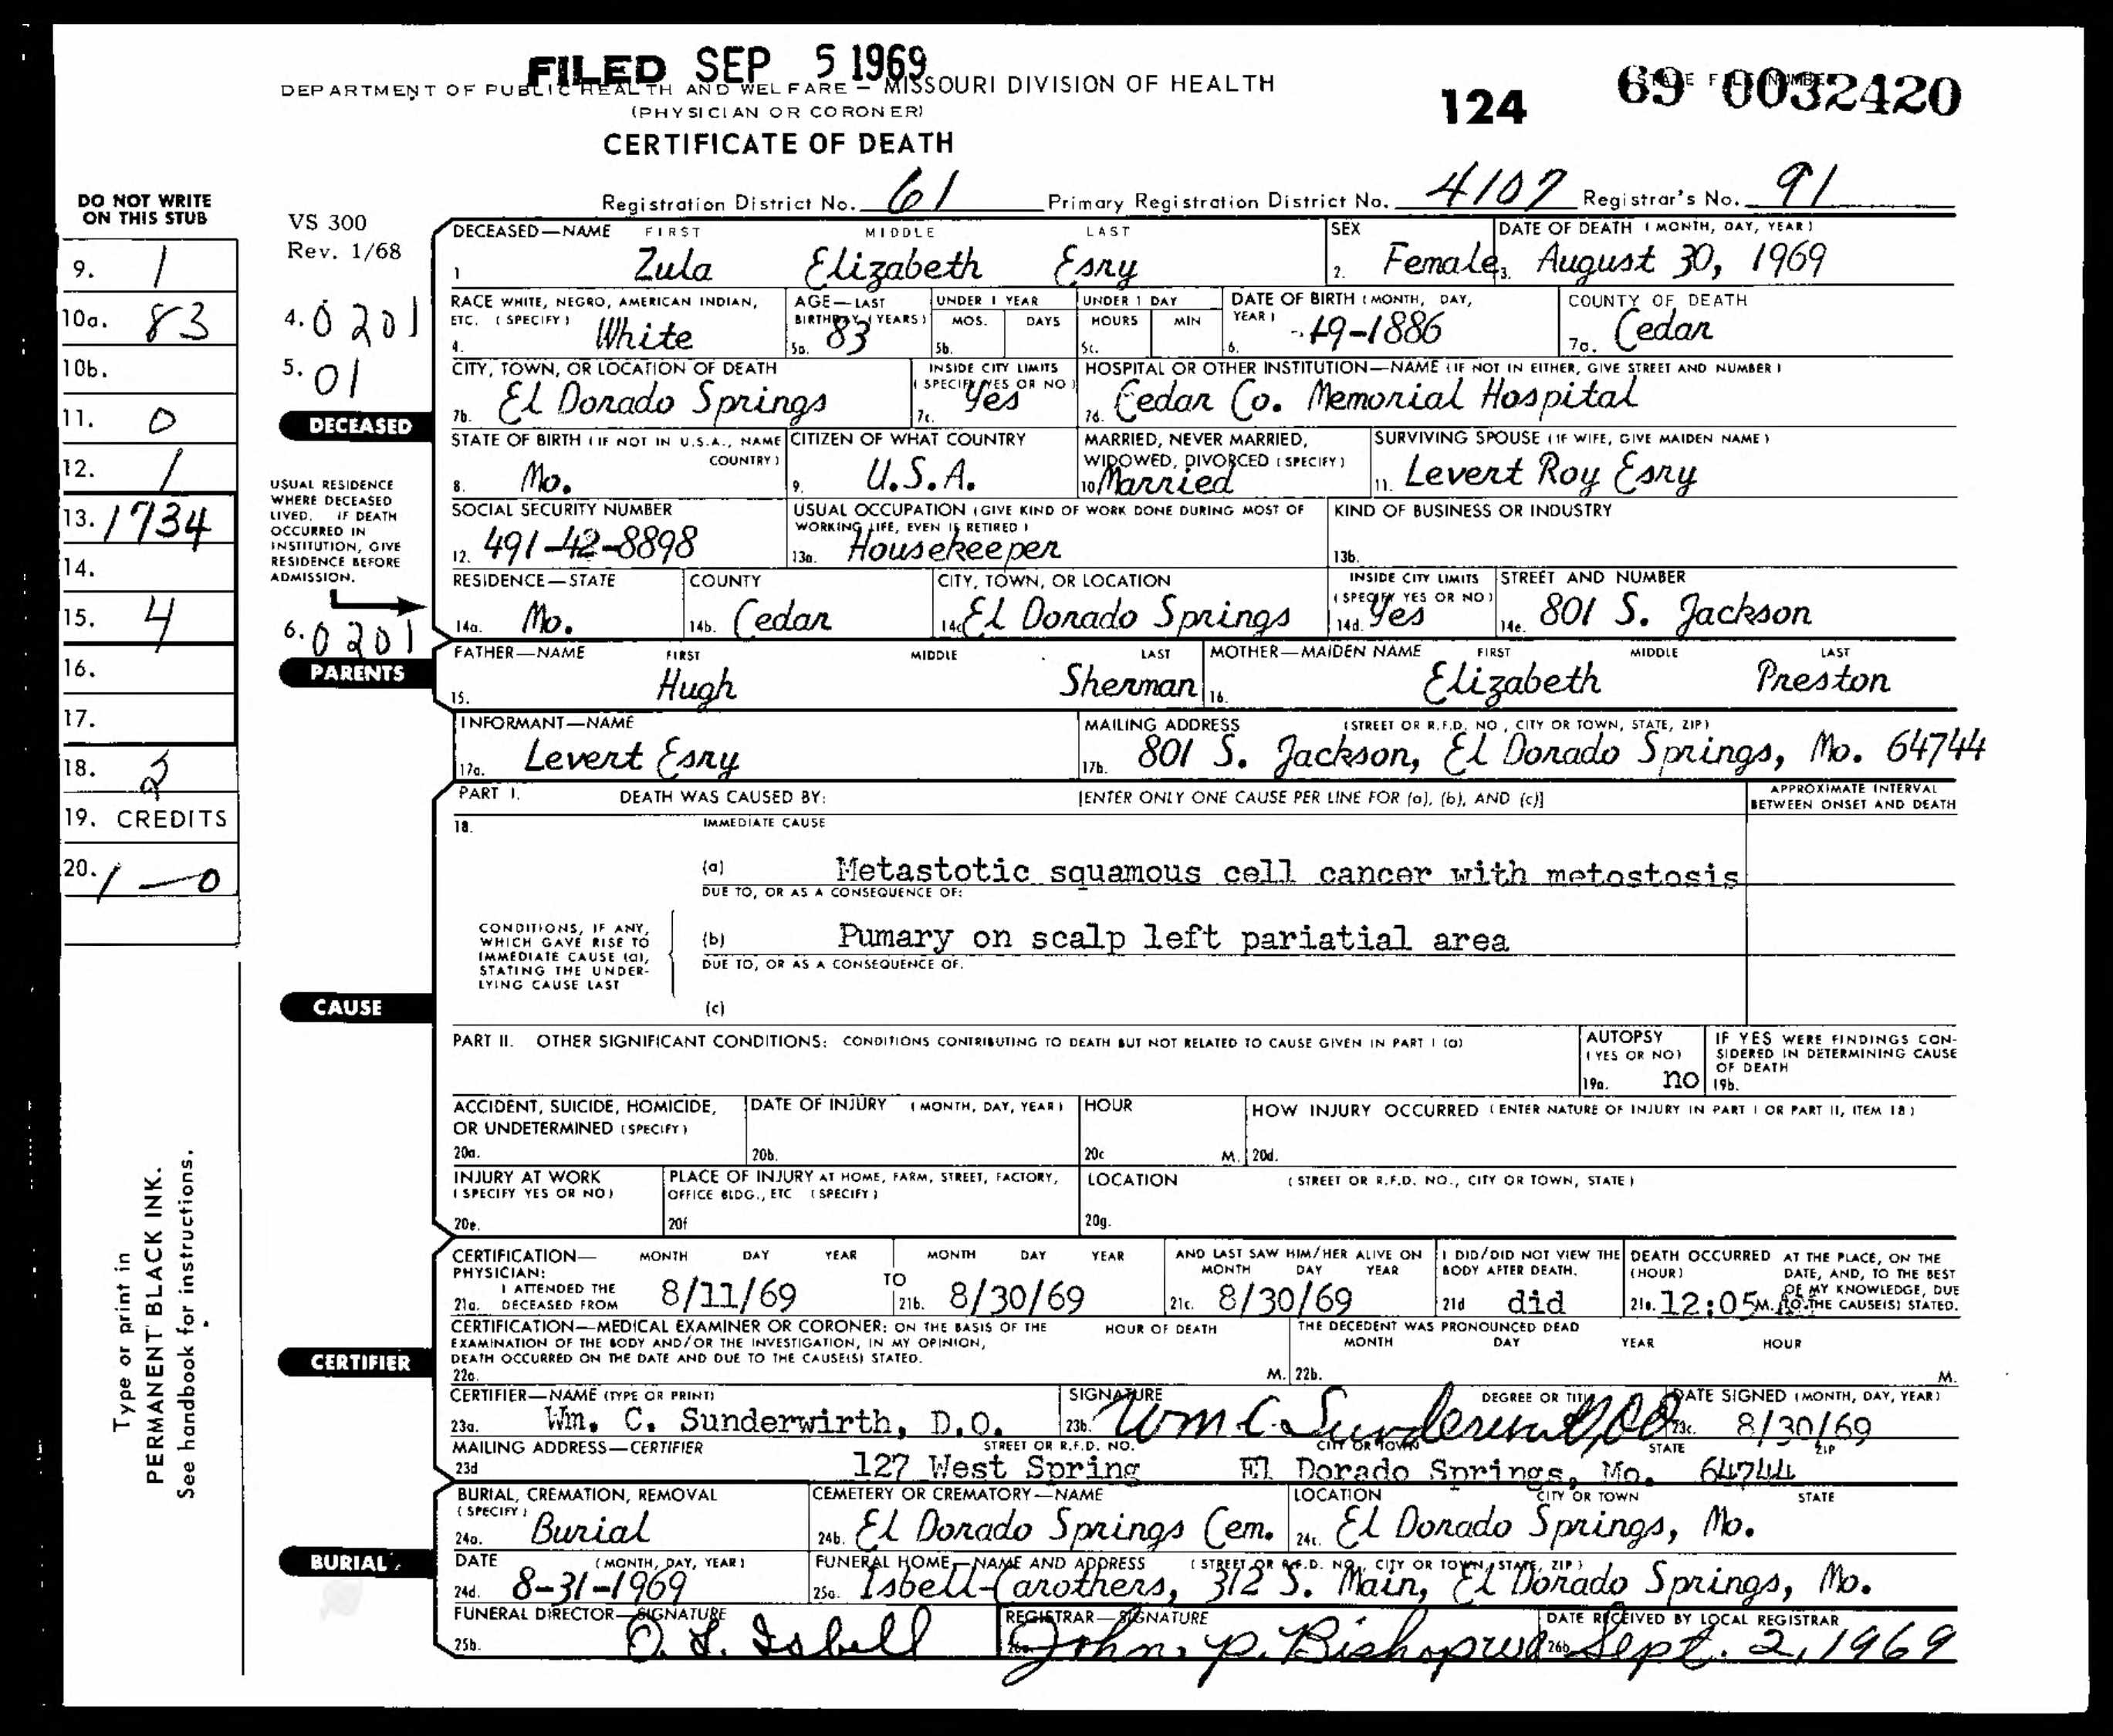 FILED SEP 5 1969
DEPARTMENT OF PUBLIC HEALTH AND WELFARE — MISSOURI DIVISION OF HEALTH
(PHYSICIAN OR CORONER)
CERTIFICATE OF DEATH
124
STATE FILE NUMBER
69 0032420
Registration District No. 61 Primary Registration District No. 4107 Registrar's No. 91
DO NOT WRITE
ON THIS STUB
9. 1
10a. 83
10b.
11. 0
12. 1
13. 1734
14.
15. 4
16.
17.
18. 2
19. CREDITS
20. 1—0
Type or print in
PERMANENT BLACK INK.
See handbook for instructions.
VS 300
Rev. 1/68
4. 0201
5. 01
DECEASED
USUAL RESIDENCE
WHERE DECEASED
LIVED. IF DEATH
OCCURRED IN
INSTITUTION, GIVE
RESIDENCE BEFORE
ADMISSION.
6. 0201
PARENTS
CAUSE
CERTIFIER
BURIAL
DECEASED—NAME FIRST MIDDLE LAST
1 Zula Elizabeth Esry
SEX
2. Female
DATE OF DEATH (MONTH, DAY, YEAR)
3. August 30, 1969
RACE WHITE, NEGRO, AMERICAN INDIAN,
ETC. (SPECIFY)
4. White
AGE—LAST
BIRTHDAY (YEARS)
5a. 83
UNDER 1 YEAR
MOS. DAYS
5b.
UNDER 1 DAY
HOURS MIN
5c.
DATE OF BIRTH (MONTH, DAY,
YEAR)
6. -19-1886
COUNTY OF DEATH
7a. Cedar
CITY, TOWN, OR LOCATION OF DEATH
7b. El Dorado Springs
INSIDE CITY LIMITS
(SPECIFY YES OR NO)
7c. Yes
HOSPITAL OR OTHER INSTITUTION—NAME (IF NOT IN EITHER, GIVE STREET AND NUMBER)
7d. Cedar Co. Memorial Hospital
STATE OF BIRTH (IF NOT IN U.S.A., NAME
COUNTRY)
8. Mo.
CITIZEN OF WHAT COUNTRY
9. U.S.A.
MARRIED, NEVER MARRIED,
WIDOWED, DIVORCED (SPECIFY)
10 Married
SURVIVING SPOUSE (IF WIFE, GIVE MAIDEN NAME)
11. Levert Roy Esry
SOCIAL SECURITY NUMBER
12. 491-42-8898
USUAL OCCUPATION (GIVE KIND OF WORK DONE DURING MOST OF
WORKING LIFE, EVEN IF RETIRED)
13a. Housekeeper
KIND OF BUSINESS OR INDUSTRY
13b.
RESIDENCE—STATE
14a. Mo.
COUNTY
14b. Cedar
CITY, TOWN, OR LOCATION
14c El Dorado Springs
INSIDE CITY LIMITS
(SPECIFY YES OR NO)
14d. Yes
STREET AND NUMBER
14e. 801 S. Jackson
FATHER—NAME FIRST MIDDLE LAST
15. Hugh Sherman
MOTHER—MAIDEN NAME FIRST MIDDLE LAST
16. Elizabeth Preston
INFORMANT—NAME
17a. Levert Esry
MAILING ADDRESS (STREET OR R.F.D. NO., CITY OR TOWN, STATE, ZIP)
17b. 801 S. Jackson, El Dorado Springs, Mo. 64744
PART I. DEATH WAS CAUSED BY: [ENTER ONLY ONE CAUSE PER LINE FOR (a), (b), AND (c)]
APPROXIMATE INTERVAL
BETWEEN ONSET AND DEATH
18. IMMEDIATE CAUSE
(a) Metastotic squamous cell cancer with metostosis
DUE TO, OR AS A CONSEQUENCE OF:
CONDITIONS, IF ANY,
WHICH GAVE RISE TO
IMMEDIATE CAUSE (a),
STATING THE UNDER-
LYING CAUSE LAST
(b) Pumary on scalp left pariatial area
DUE TO, OR AS A CONSEQUENCE OF:
(c)
PART II. OTHER SIGNIFICANT CONDITIONS: CONDITIONS CONTRIBUTING TO DEATH BUT NOT RELATED TO CAUSE GIVEN IN PART I (a)
AUTOPSY
(YES OR NO)
19a. no
IF YES WERE FINDINGS CON-
SIDERED IN DETERMINING CAUSE
OF DEATH
19b.
ACCIDENT, SUICIDE, HOMICIDE,
OR UNDETERMINED (SPECIFY)
20a.
DATE OF INJURY (MONTH, DAY, YEAR)
20b.
HOUR
20c M.
HOW INJURY OCCURRED (ENTER NATURE OF INJURY IN PART I OR PART II, ITEM 18)
20d.
INJURY AT WORK
(SPECIFY YES OR NO)
20e.
PLACE OF INJURY AT HOME, FARM, STREET, FACTORY,
OFFICE BLDG., ETC (SPECIFY)
20f
LOCATION (STREET OR R.F.D. NO., CITY OR TOWN, STATE)
20g.
CERTIFICATION— MONTH DAY YEAR
PHYSICIAN:
I ATTENDED THE
21a. DECEASED FROM 8/11/69
MONTH DAY YEAR
TO
21b. 8/30/69
AND LAST SAW HIM/HER ALIVE ON
MONTH DAY YEAR
21c. 8/30/69
I DID/DID NOT VIEW THE
BODY AFTER DEATH.
21d did
DEATH OCCURRED AT THE PLACE, ON THE
(HOUR) DATE, AND, TO THE BEST
OF MY KNOWLEDGE, DUE
21e. 12:05 M. TO THE CAUSE(S) STATED.
CERTIFICATION—MEDICAL EXAMINER OR CORONER: ON THE BASIS OF THE
EXAMINATION OF THE BODY AND/OR THE INVESTIGATION, IN MY OPINION,
DEATH OCCURRED ON THE DATE AND DUE TO THE CAUSE(S) STATED.
22a.
HOUR OF DEATH
M.
THE DECEDENT WAS PRONOUNCED DEAD
MONTH DAY YEAR HOUR
22b. M.
CERTIFIER—NAME (TYPE OR PRINT)
23a. Wm. C. Sunderwirth, D.O.
SIGNATURE DEGREE OR TITLE
23b. Wm C. Sunderwirth, DO
DATE SIGNED (MONTH, DAY, YEAR)
23c. 8/30/69
MAILING ADDRESS—CERTIFIER STREET OR R.F.D. NO. CITY OR TOWN STATE ZIP
23d 127 West Spring El Dorado Springs, Mo. 64744
BURIAL, CREMATION, REMOVAL
(SPECIFY)
24a. Burial
CEMETERY OR CREMATORY—NAME
24b. El Dorado Springs Cem.
LOCATION CITY OR TOWN STATE
24c. El Dorado Springs, Mo.
DATE (MONTH, DAY, YEAR)
24d. 8-31-1969
FUNERAL HOME—NAME AND ADDRESS (STREET OR R.F.D. NO., CITY OR TOWN, STATE, ZIP)
25a. Isbell-Carothers, 312 S. Main, El Dorado Springs, Mo.
FUNERAL DIRECTOR—SIGNATURE
25b. O. L. Isbell
REGISTRAR—SIGNATURE
26a. John P. Bishop
DATE RECEIVED BY LOCAL REGISTRAR
26b. Sept. 2, 1969